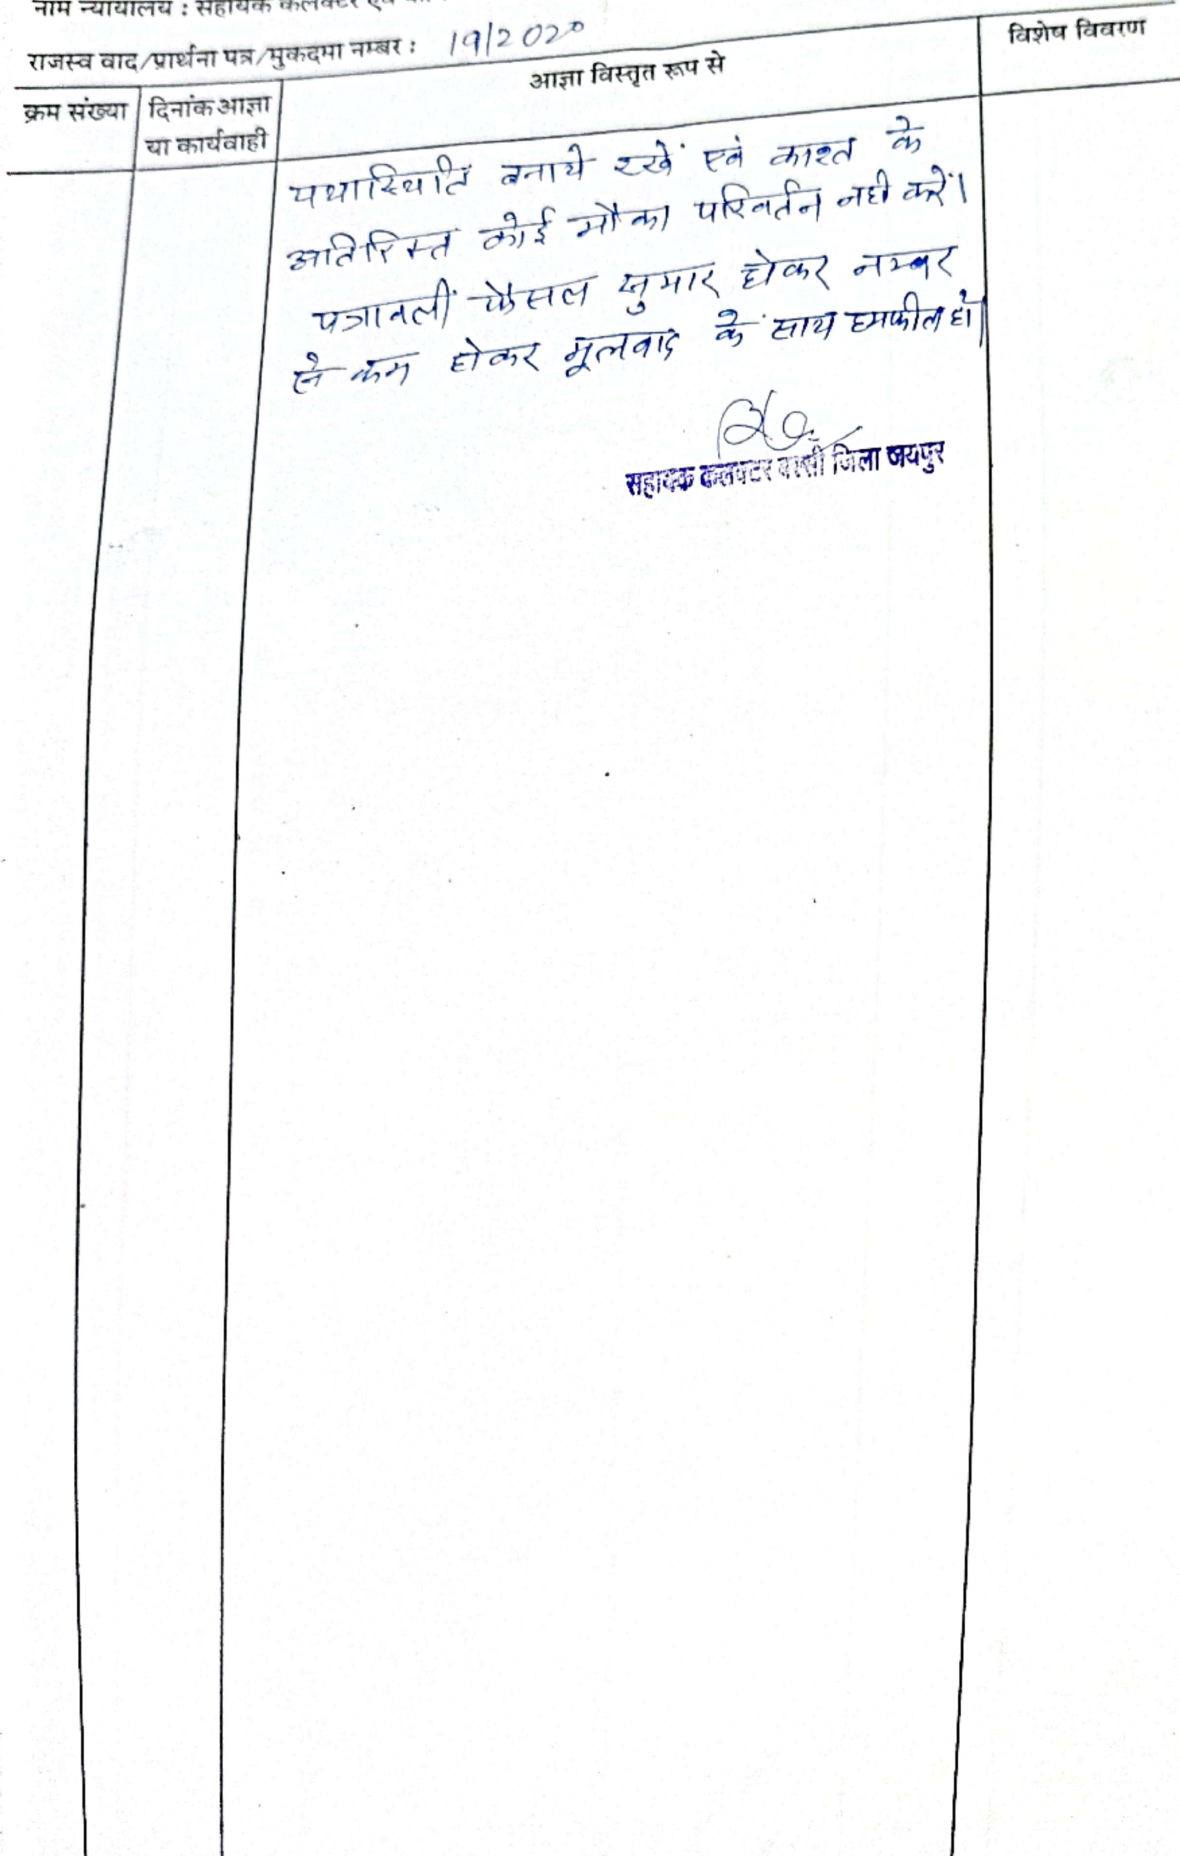 नाम न्यायालय : सहायक कलक्टर एवं
राजस्व वाद/प्रार्थना पत्र/मुकदमा नम्बर : 19/2020
क्रम संख्या
दिनांक आज्ञा
या कार्यवाही
आज्ञा विस्तृत रूप से
विशेष विवरण
यथास्थिति बनाये रखें एवं काश्त के
अतिरिक्त कोई मौका परिवर्तन नही करें।
पत्रावली फैसल सुमार होकर नम्बर
से कम होकर मूलवाद के साथ हमफील हो।
सहायक कलक्टर बस्सी जिला जयपुर